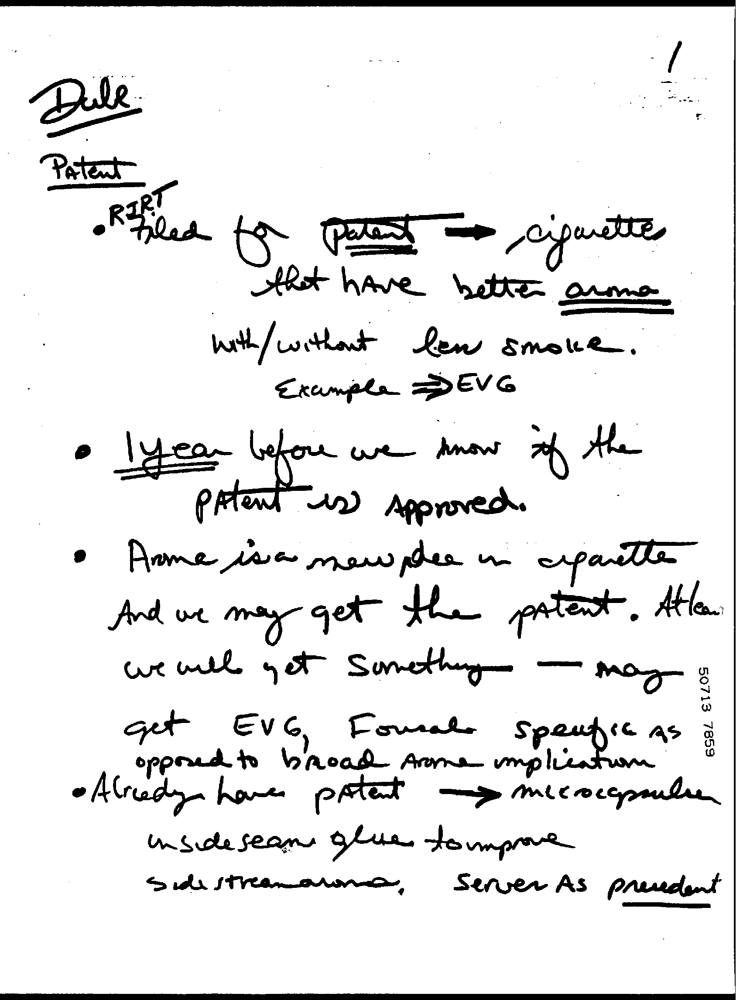 1
Dale
Patent
RJRT
• filed for patent → cigarettes
that have better aroma
with/without less smoke.
Example ⇒ EVG
• 1 year before we know if the
patent is approved.
• Aroma is a new idea in cigarettes
And we may get the patent. At least
we will get something — may
get EVG, Formula specific as
opposed to broad Aroma implication
• Already have patent → microcapsules
inside seam glue to improve
sidestream aroma. Serves As precedent
50713 7859